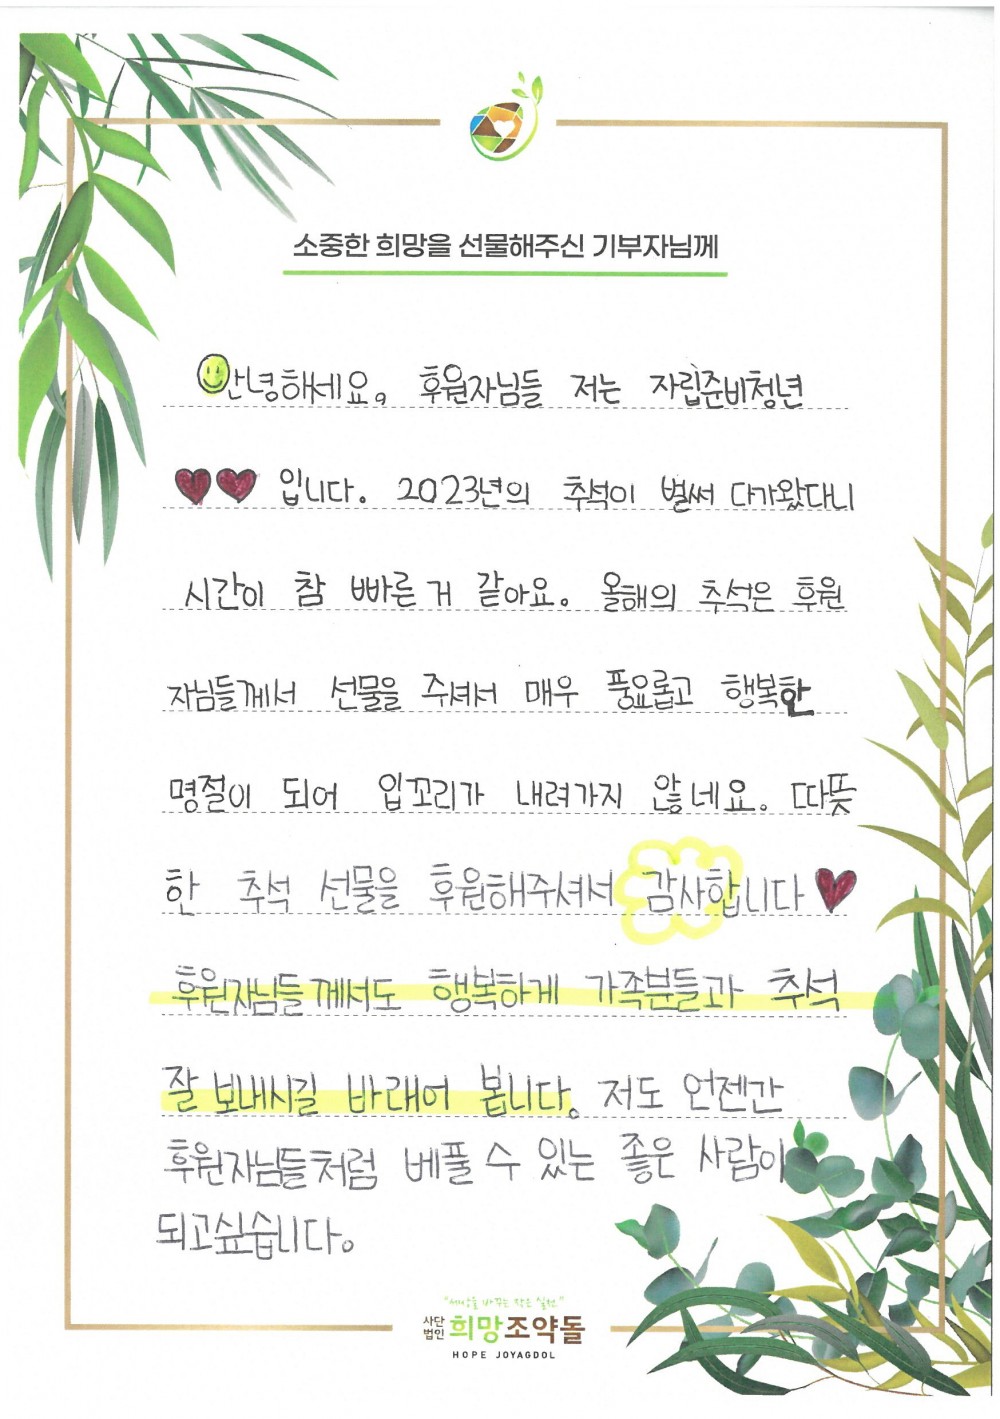 소중한 희망을 선물해주신 기부자님께
안녕하세요. 후원자님들 저는 자립준비청년
입니다. 2023년의 추석이 벌써 다가왔다니
시간이 참 빠른 거 같아요. 올해의 추석은 후원
자님들께서 선물을 주셔서 매우 풍요롭고 행복한
명절이 되어 입꼬리가 내려가지 않네요. 따뜻
한 추석 선물을 후원해주셔서 감사합니다
후원자님들께서도 행복하게 가족분들과 추석
잘 보내시길 바래어 봅니다. 저도 언젠간
후원자님들처럼 베풀 수 있는 좋은 사람이
되고싶습니다.
"세상을 바꾸는 작은 실천"
사단
법인 희망조약돌
HOPE JOYAGDOL